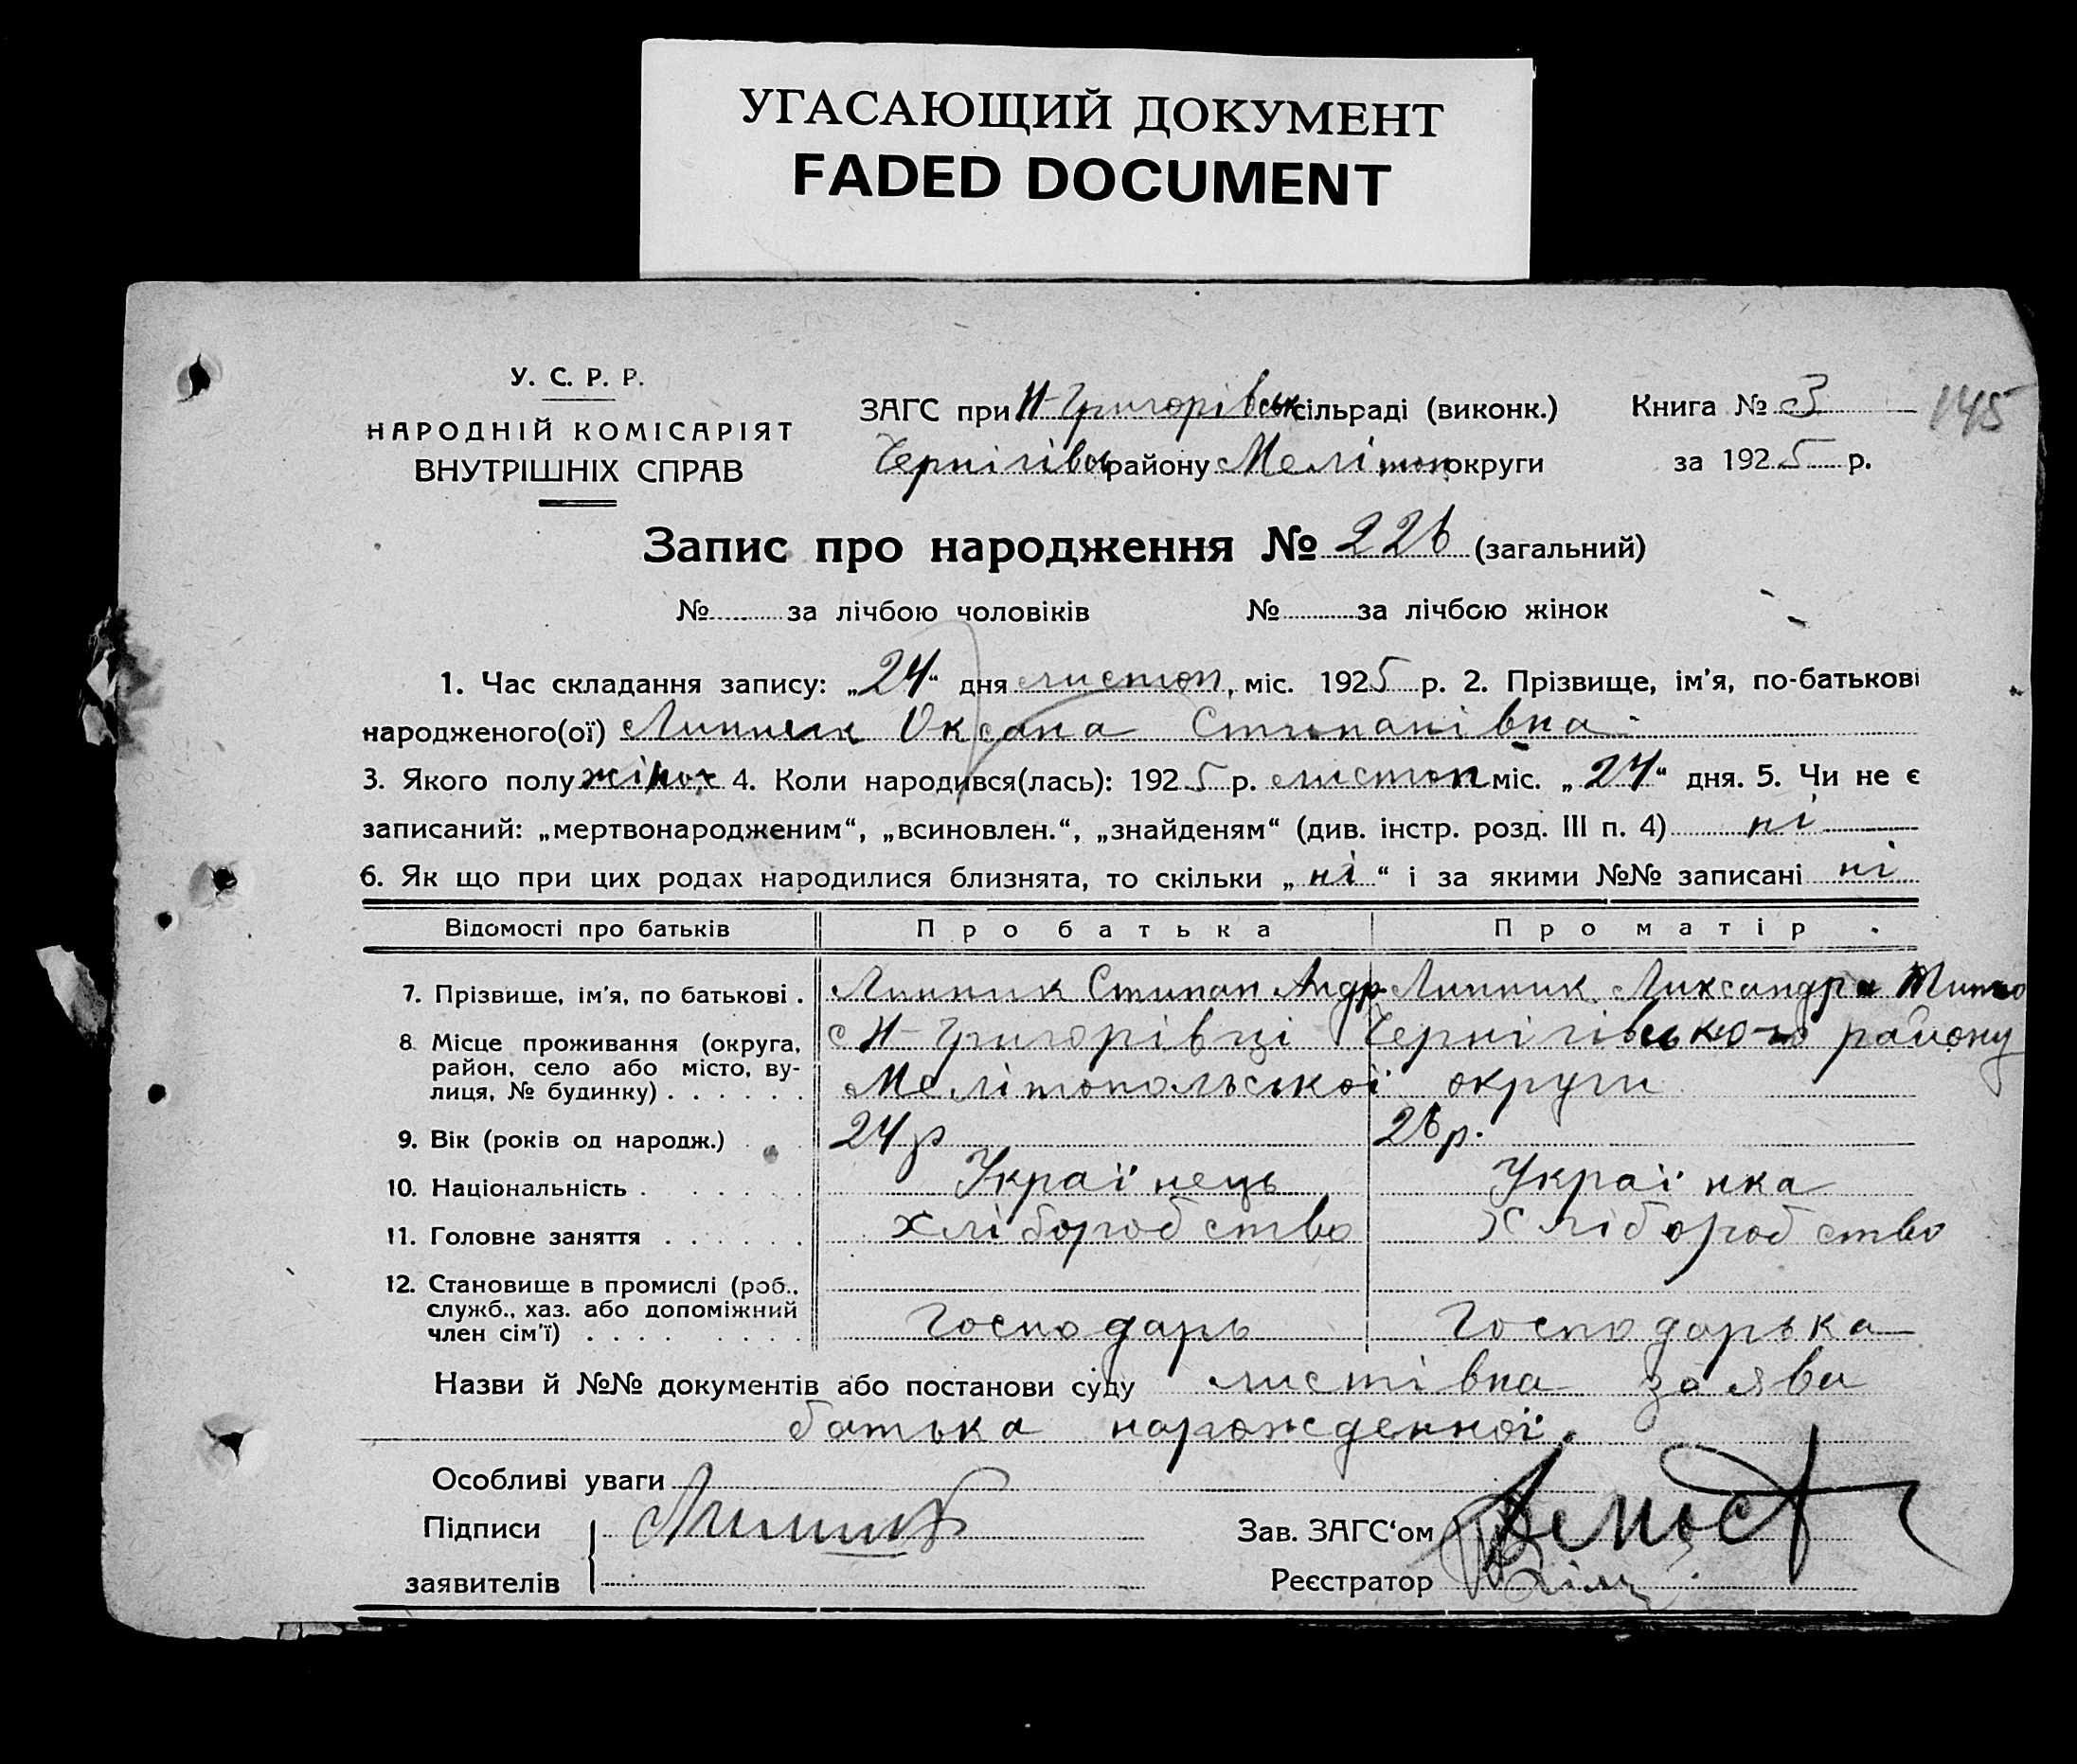 УГАСАЮЩИЙ ДОКУМЕНТ
FADED DOCUMENT
У. С. Р. Р.
НАРОДНІЙ КОМІСАРІЯТ
ВНУТРІШНІХ СПРАВ
ЗАГС при Н-Григорівськ сільраді (виконк.)
Чернігівсь району Мелітоп округи
Книга № 3
за 1925 р.
145
Запис про народження № 226 (загальний)
№ за лічбою чоловіків № за лічбою жінок
1. Час складання запису: „24“ дня листоп, міс. 1925 р. 2. Прізвище, ім'я, по-батькові
народженого(ої) Липник Оксана Стипанівна
3. Якого полу жіноч 4. Коли народився(лась): 1925 р. листоп міс. „24“ дня. 5. Чи не є
записаний: „мертвонародженим“, „всиновлен.“, „знайденям“ (див. інстр. розд. III п. 4) ні
6. Як що при цих родах народилися близнята, то скільки „ні“ і за якими №№ записані ні
Відомості про батьків Про батька Про матір
7. Прізвище, ім'я, по батькові . Липник Стипан Андр Липник Ликсандра
8 Місце проживання (округа, район, село або місто, вулиця, № будинку) . . . . . . с Н-Григорівці Чернігівського району
Мелітопольської округи
9. Вік (років од народж.) 24 р 26 р.
10. Національність . . . . . . Українець Українка
11. Головне заняття . . . . . . Хліборобство Хліборобство
12. Становище в промислі (роб., служб., хаз. або допоміжний член сім'ї) . . . . Господарь Господарька
Назви й №№ документів або постанови суду листівна заява
батька нарожденної.
Особливі уваги
Підписи
заявителів
Липник
Зав. ЗАГС‘ом
Реєстратор